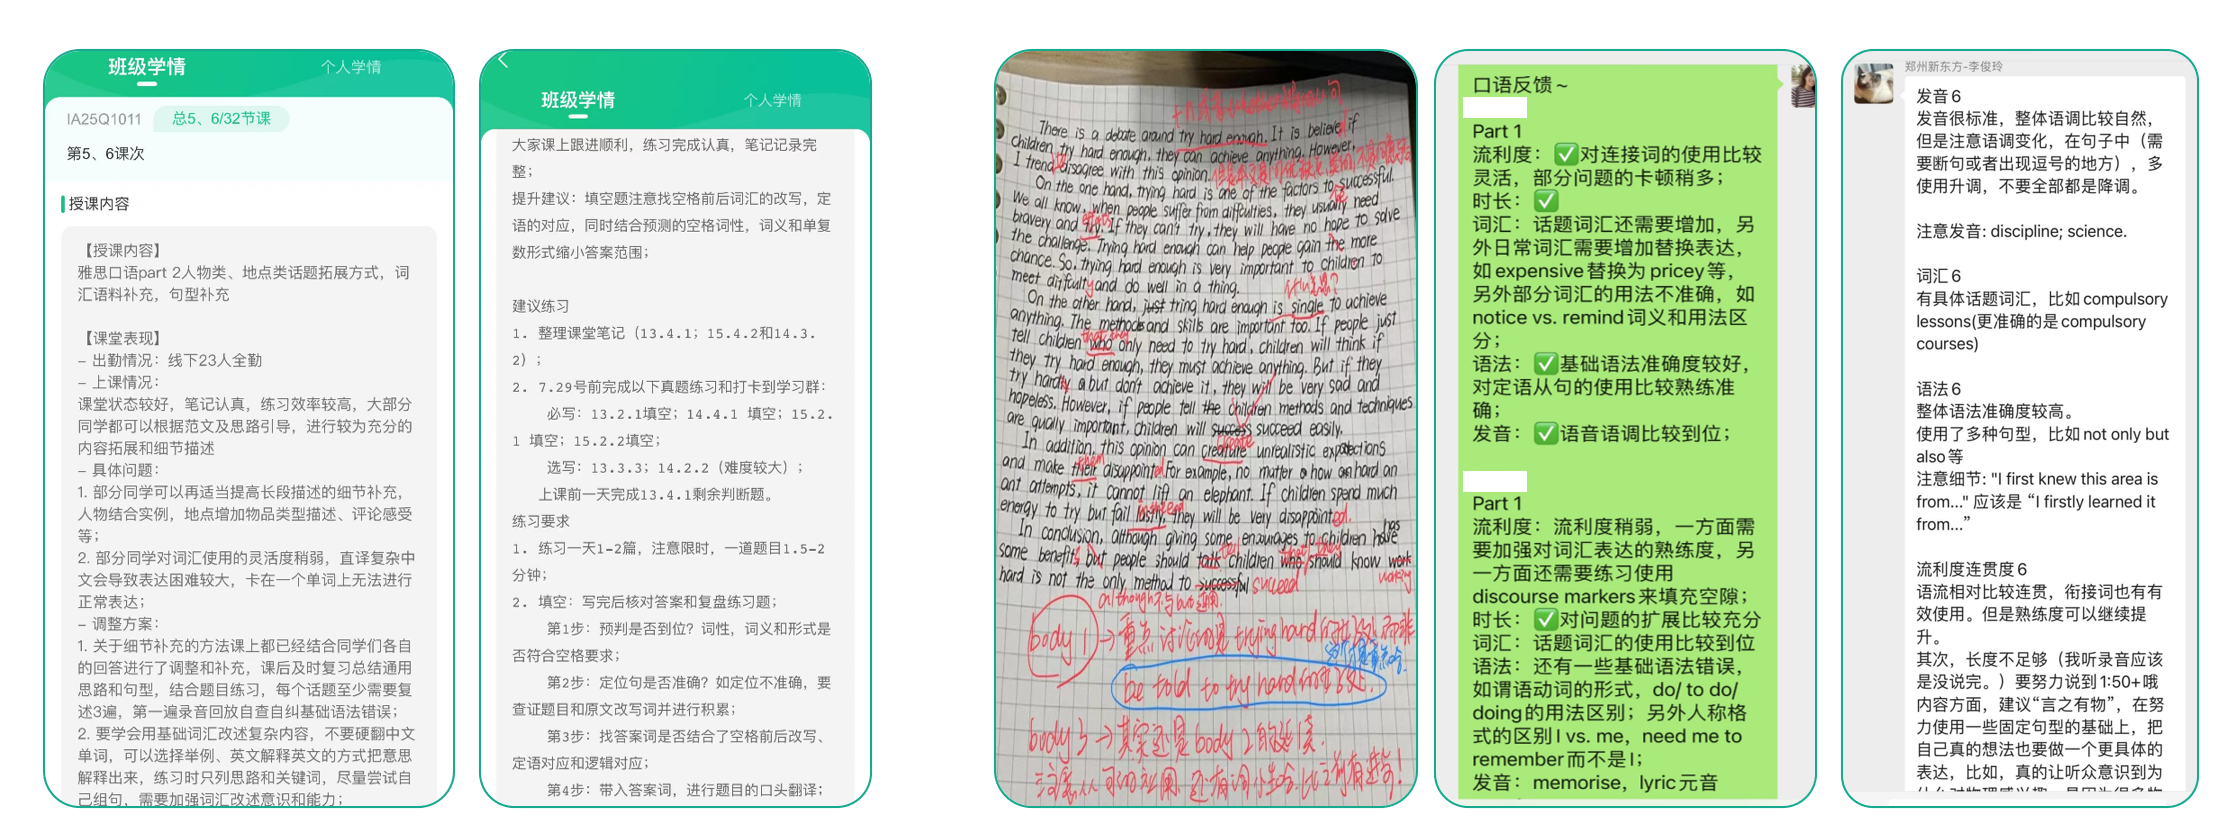 班级学情
个人学情
IA25Q1011
总5、6/32节课
第5、6课次
授课内容
【授课内容】
雅思口语part 2人物类、地点类话题拓展方式，词
汇语料补充，句型补充
【课堂表现】
– 出勤情况：线下23人全勤
– 上课情况：
课堂状态较好，笔记认真，练习效率较高，大部分
同学都可以根据范文及思路引导，进行较为充分的
内容拓展和细节描述
– 具体问题：
1. 部分同学可以再适当提高长段描述的细节补充，
人物结合实例，地点增加物品类型描述、评论感受
等；
2. 部分同学对词汇使用的灵活度稍弱，直译复杂中
文会导致表达困难较大，卡在一个单词上无法进行
正常表达；
– 调整方案：
1. 关于细节补充的方法课上都已经结合同学们各自
的回答进行了调整和补充，课后及时复习总结通用
思路和句型，结合题目练习，每个话题至少需要复
述3遍，第一遍录音回放自查自纠基础语法错误；
2. 要学会用基础词汇改述复杂内容，不要硬翻中文
单词，可以选择举例、英文解释英文的方式把意思
解释出来，练习时只列思路和关键词，尽量尝试自
己组句，需要加强词汇改述意识和能力；
班级学情
个人学情
大家课上跟进顺利，练习完成认真，笔记记录完
整；
提升建议：填空题注意找空格前后词汇的改写，定
语的对应，同时结合预测的空格词性，词义和单复
数形式缩小答案范围；
建议练习
1. 整理课堂笔记（13.4.1；15.4.2和14.3.
2）；
2. 7.29号前完成以下真题练习和打卡到学习群：
必写：13.2.1填空；14.4.1 填空；15.2.
1 填空；15.2.2填空；
选写：13.3.3；14.2.2（难度较大）；
上课前一天完成13.4.1剩余判断题。
练习要求
1. 练习一天1-2篇，注意限时，一道题目1.5-2
分钟；
2. 填空：写完后核对答案和复盘练习题；
第1步：预判是否到位？词性，词义和形式是
否符合空格要求；
第2步：定位句是否准确？如定位不准确，要
查证题目和原文改写词并进行积累；
第3步：找答案词是否结合了空格前后改写、
定语对应和逻辑对应；
第4步：带入答案词，进行题目的口头翻译；
There is a debate around try hard enough. It is believe if
children try hard enough, they can achieve anything. However,
I trend disagree with this opinion.
On the one hand, trying hard is one of the factors to successful.
We all know, when people suffer from difficulties, they usually need
bravery and try. If they can't try, they will have no hope to solve
the challenge. Trying hard enough can help people gain the more
chance. So, trying hard enough is very important to children to
meet diffculty and do well in a thing.
On the other hand, just tring hard enough is single to achieve
anything. The methods and skills are important too. If people just
tell children who only need to try hard, children will think if
they try hard enough, they must achieve anything. But if they
try hardly a but don't achieve it, they will be very sad and
hopeless. However, if people tell the children methods and techniques
are qually important, children will success succeed easily.
In addition, this opinion can creature unrealistic expectations
and make their disappointed For example, no matter how an hard an
ant attempts, it cannot lift an elephant. If children spend much
energy to try but fail lastly, they will be very disappointed.
In conclusion, although giving some encourages to children have
some benefits, but people should talk children who should know work
hard is not the only method to successful succeed
although不与but连用
body 1
be told to try hard
body 3 → 其实还是 body 2 的
口语反馈～
Part 1
流利度：✅对连接词的使用比较
灵活，部分问题的卡顿稍多；
时长：✅
词汇：话题词汇还需要增加，另
外日常词汇需要增加替换表达，
如 expensive 替换为 pricey 等，
另外部分词汇的用法不准确，如
notice vs. remind 词义和用法区
分；
语法：✅基础语法准确度较好，
对定语从句的使用比较熟练准
确；
发音：✅语音语调比较到位；
Part 1
流利度：流利度稍弱，一方面需
要加强对词汇表达的熟练度，另
一方面还需要练习使用
discourse markers 来填充空隙；
时长：✅对问题的扩展比较充分
词汇：话题词汇的使用比较到位
语法：还有一些基础语法错误，
如谓语动词的形式，do/ to do/
doing 的用法区别；另外人称格
式的区别 I vs. me，need me to
remember 而不是 I；
发音：memorise，lyric 元音
郑州新东方-李俊玲
发音 6
发音很标准，整体语调比较自然，
但是注意语调变化，在句子中（需
要断句或者出现逗号的地方），多
使用升调，不要全部都是降调。
注意发音: discipline; science.
词汇 6
有具体话题词汇，比如 compulsory
lessons(更准确的是 compulsory
courses)
语法 6
整体语法准确度较高。
使用了多种句型，比如 not only but
also 等
注意细节: "I first knew this area is
from..." 应该是 “I firstly learned it
from...”
流利度连贯度 6
语流相对比较连贯，衔接词也有有
效使用。但是熟练度可以继续提
升。
其次，长度不足够（我听录音应该
是没说完。）要努力说到 1:50+哦
内容方面，建议“言之有物”，在努
力使用一些固定句型的基础上，把
自己真的想法也要做一个更具体的
表达，比如，真的让听众意识到为